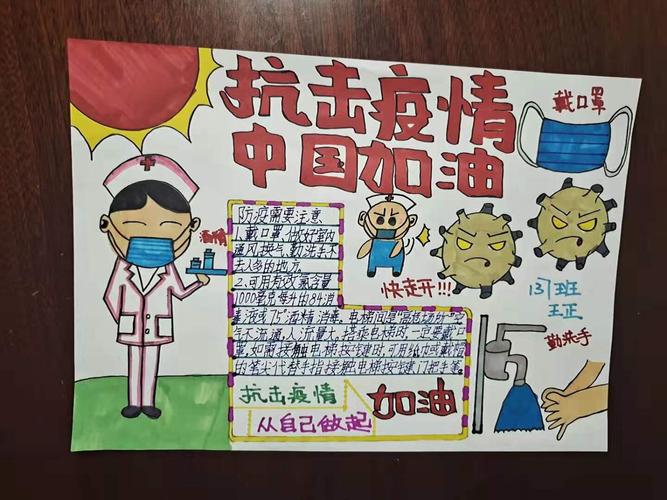 抗击疫情
中国加油
戴口罩
酒精
防疫需要注意
1、戴口罩、做好室内
通风换气、勤洗手不
去人多的地方。
2、可用有效氯含量
1000毫克每升的84消
毒液或75°酒精消毒。电梯间是密闭场所空
气不流通，人流量大，搭乘电梯时一定要戴口
罩，如需接触电梯按键时，可用纸巾或戴帽
的笔尖代替手指接触电梯按键、门把手等。
快走开!!!
137班
王正
勤洗手
抗击疫情
从自己做起
加油